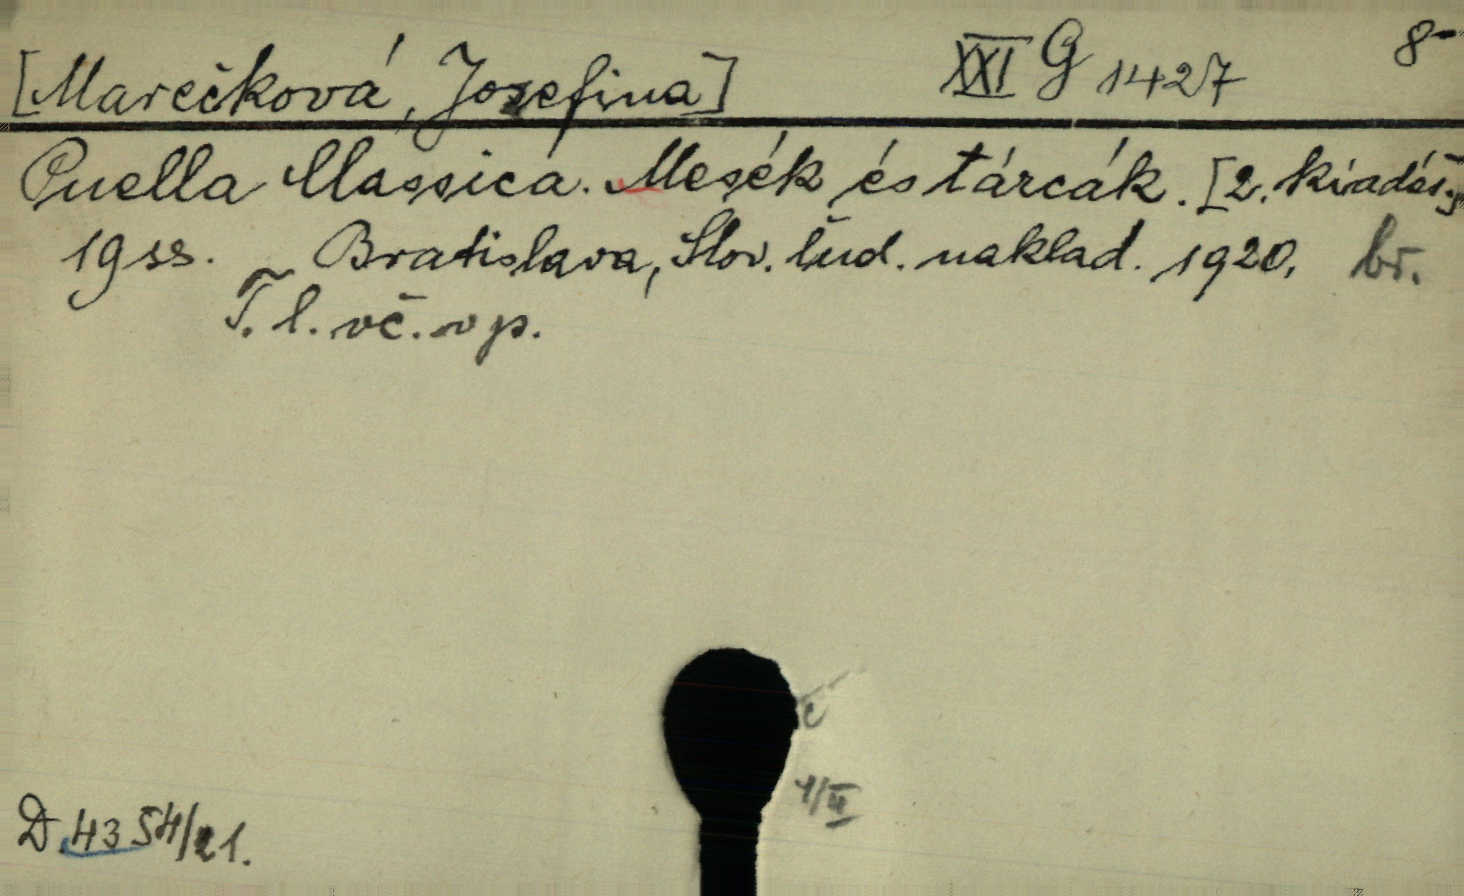 [Marečková, Jozefina] XXI G 1427 8-
Puella Classica. Mesék és tárcák. [2. kiadás.]
19 ss. Bratislava, Slov. ľud. naklad. 1920. br.
T. l. vč. v p.
D. 4354/21.